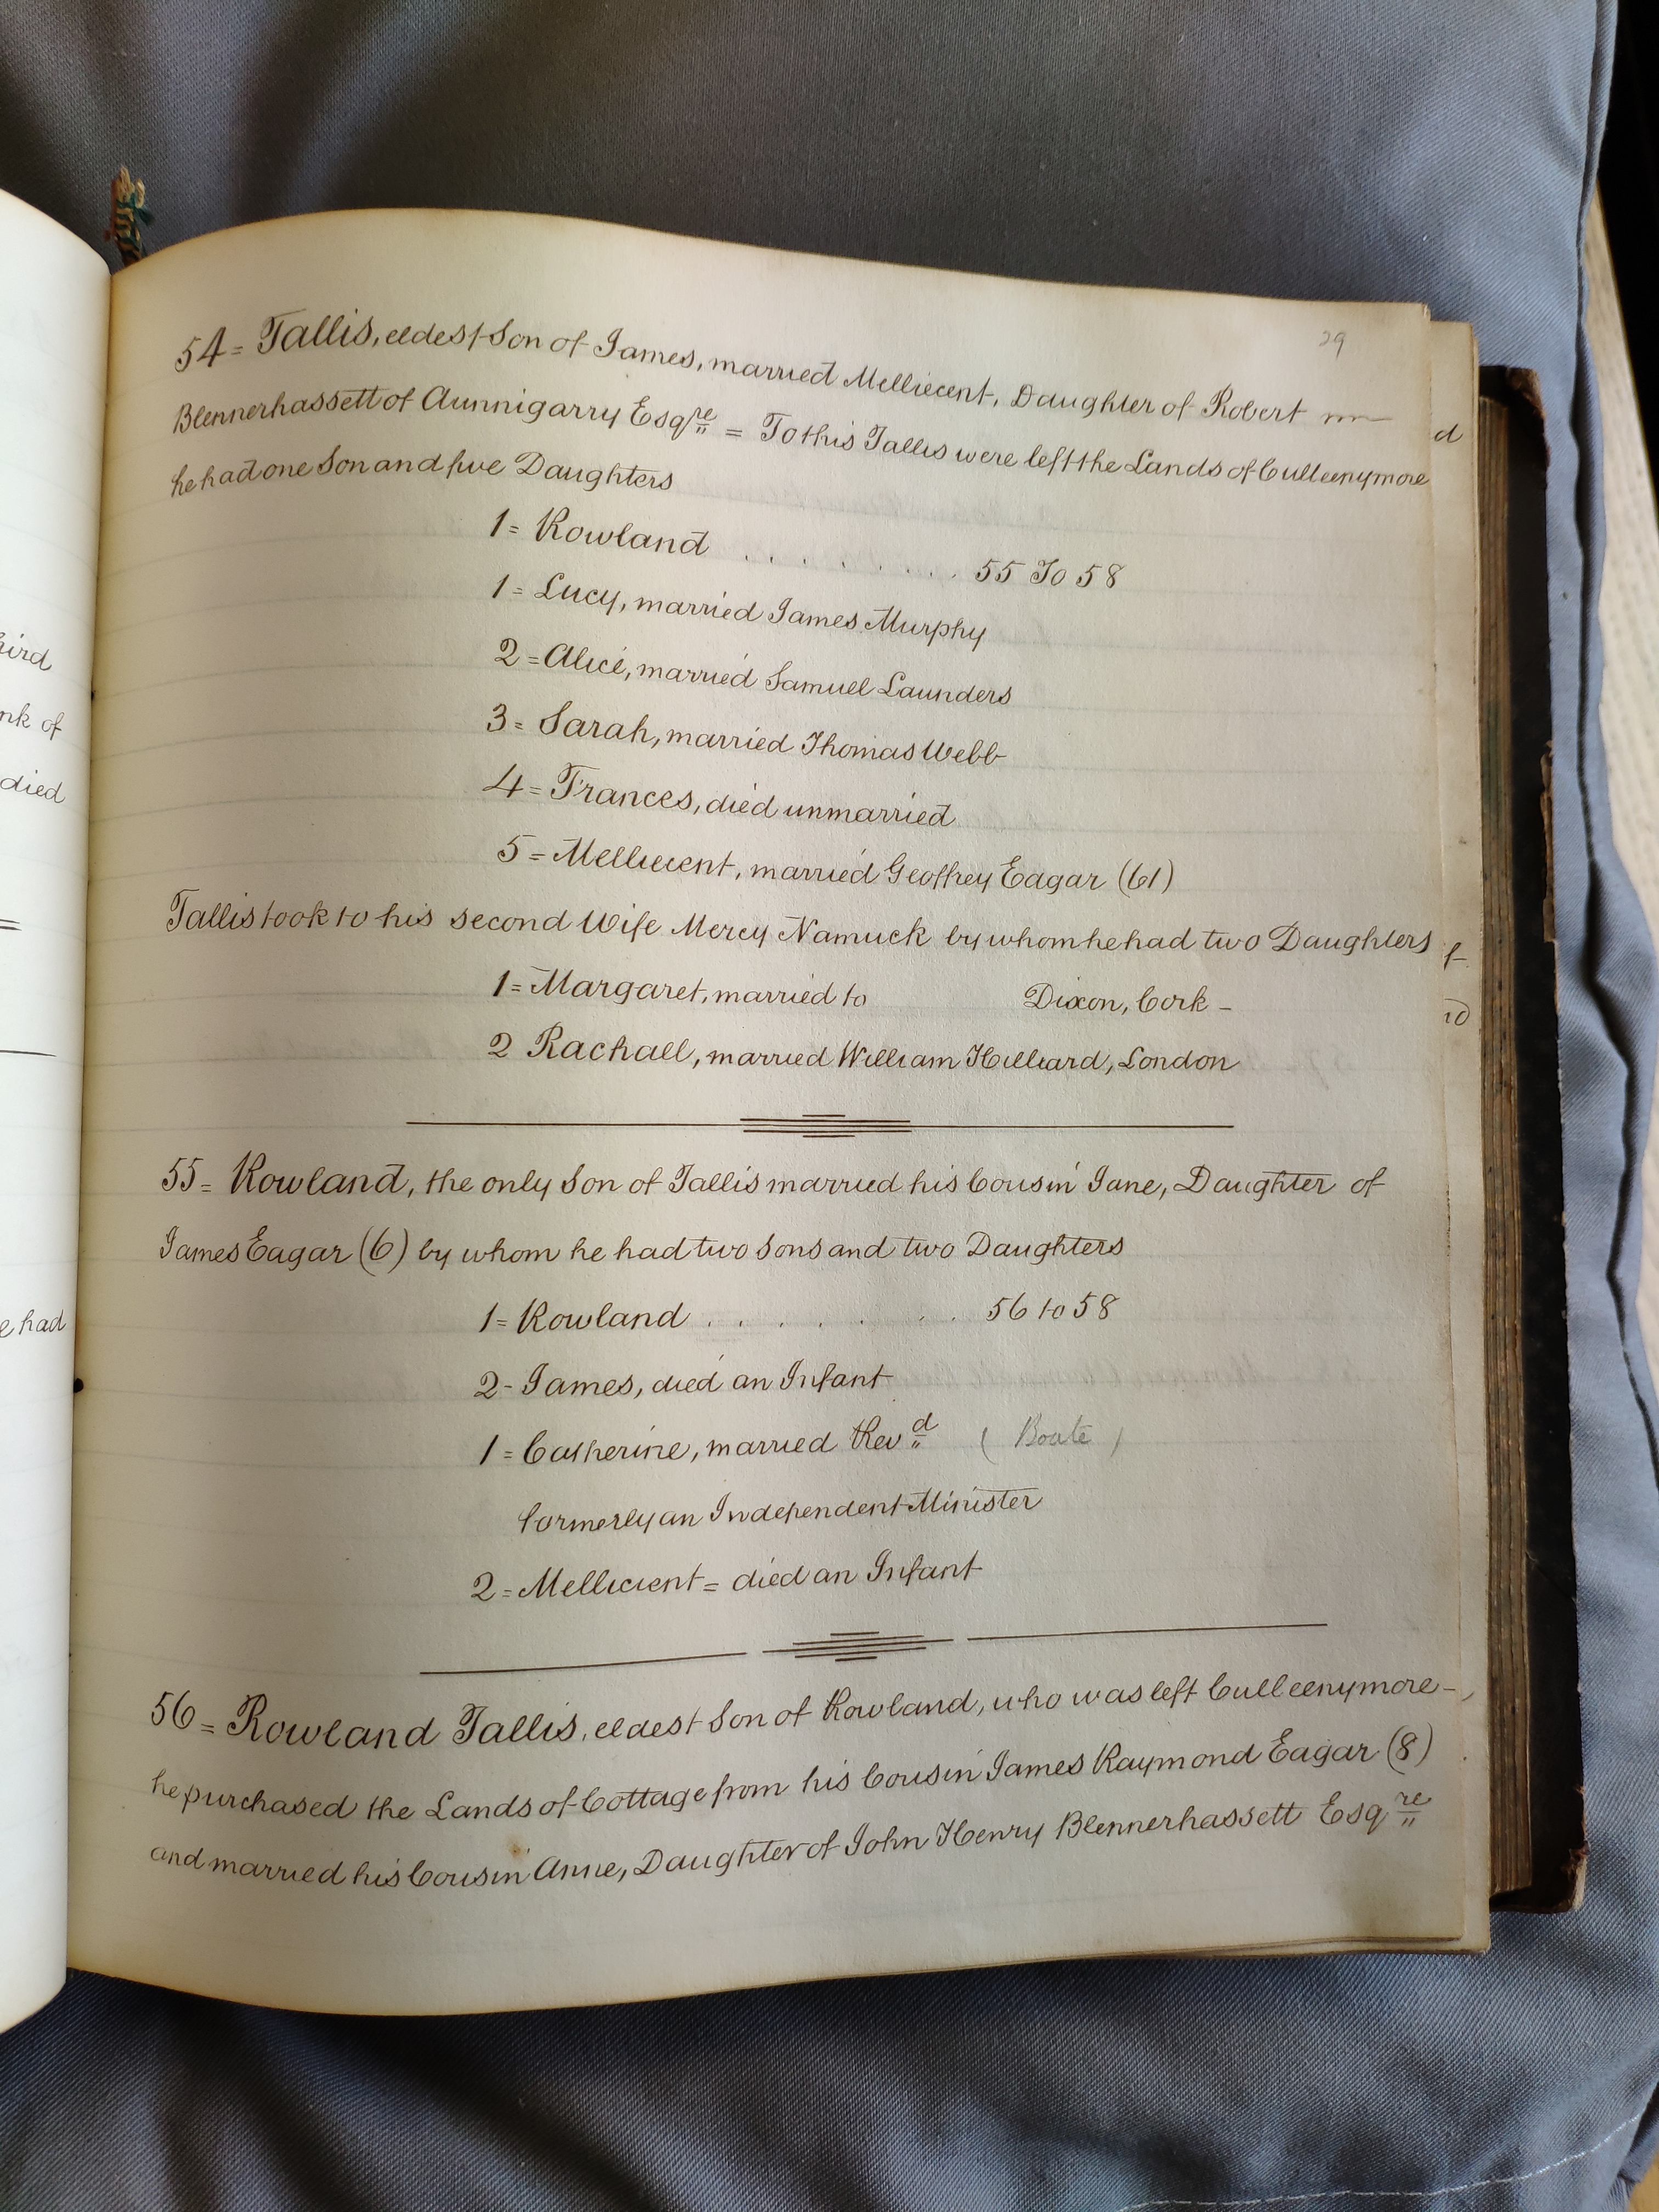 29
54= Tallis, eldest Son of James, married Melliecent, Daughter of Robert
Blennerhassett of Aunnigarry Esqre = To this Tallis were left the Lands of Culleenymore
he had one Son and five Daughters
1= Rowland . . . . . . . . 55 To 58
1= Lucy, married James Murphy
2= Alice, married Samuel Launders
3= Sarah, married Thomas Webb
4= Frances, died unmarried
5= Melliecent, married Geoffrey Eagar (61)
Tallis took to his second Wife Mercy Namuck by whom he had two Daughters
1= Margaret, married to Dixon, Cork -
2 Rachall, married William Hilliard, London
55= Rowland, the only Son of Tallis married his Cousin Jane, Daughter of
James Eagar (6) by whom he had two Sons and two Daughters
1= Rowland . . . . . . . 56 to 58
2- James, died an Infant
1= Catherine, married Revd ( Boate )
formerly an Independent Minister
2= Mellicient = died an Infant
56= Rowland Tallis, eldest Son of Rowland, who was left Culleenymore -
he purchased the Lands of Cottage from his Cousin James Raymond Eagar (8)
and married his Cousin Anne, Daughter of John Henry Blennerhassett Esqre
hird
nk of
died
e had